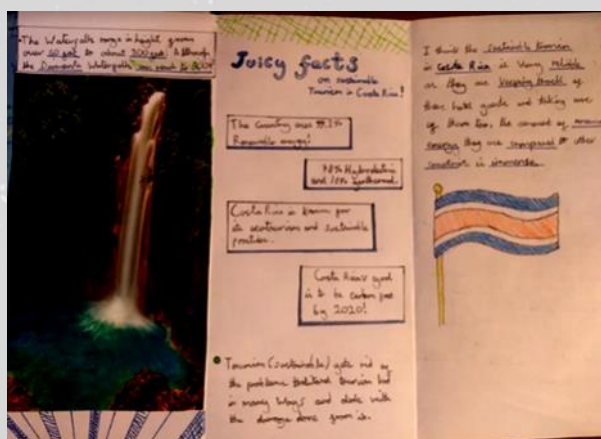 •The Waterfalls range in height from
over 40 to about 300 Although
the Waterfalls can reach to
Juicy facts
on sustainable
Tourism in Costa Rica!
The Country uses 99.2%
Renewable energy!
78% Hydroelectric
and 10% geothermal.
Costa Rica is known for
its ecotourism and sustainable
practices.
Costa Rica's goal
is to be carbon free
by 2020!
• Tourism (sustainable) gets rid of
the problems traditional tourism had
in many ways and deals with
the damage done from it.
I think the sustainable tourism
in Costa Rica is very reliable
as they are keeping track of
their hotel guests and taking care
of them too, the amount of
energy they use compared to other
countries is immense.